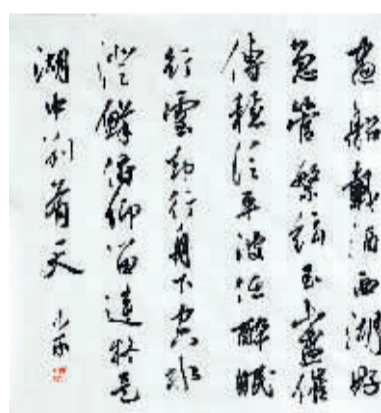 畫船載酒西湖好
急管繁絃玉盞催
傳穩泛平波任醉眠
行雲却行舟下空水
澄鮮俯仰留連疑是
湖中別有天